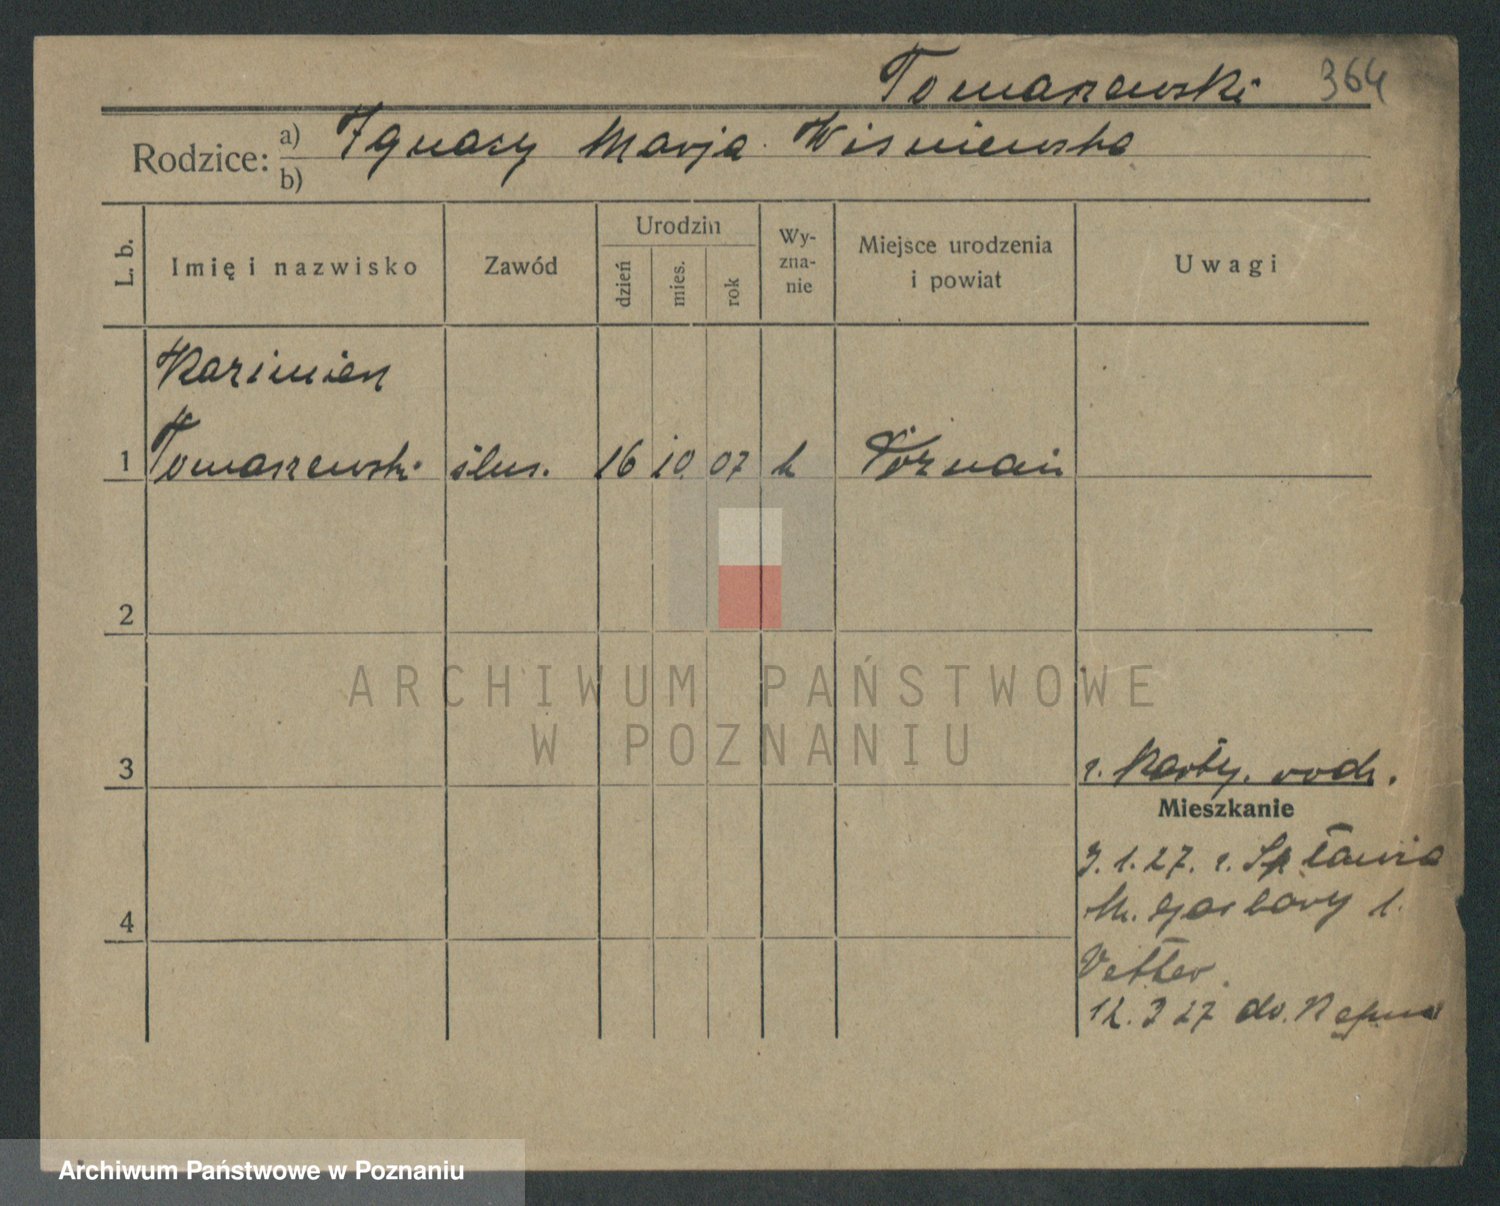 Tomaszewski 364
Rodzice: a) Ignacy Marja Wiśniewska
b)
L. b. Imię i nazwisko Zawód Urodzin dzień mies. rok Wy-zna-nie Miejsce urodzenia i powiat Uwagi
Kazimierz
1 Tomaszewski ślus. 16 10 07 k Poznań
2
ARCHIWUM PAŃSTWOWE
W POZNANIU
3 z. Karty. rodz.
Mieszkanie
3.1.27. z. Spławia
4 M. Garbary 1.
Vetter.
12.3 27 do.
Archiwum Państwowe w Poznaniu